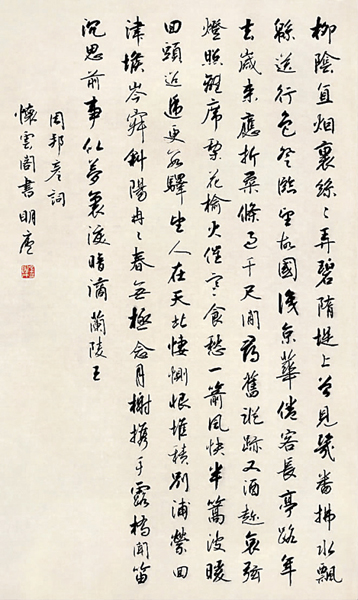 柳陰直烟裏絲〻弄碧隋堤上曾見幾番拂水飄
緜送行色登臨望故國京華倦客長亭路年
去歲來應折柔條過千尺閒尋舊蹤跡又酒趁哀弦
燈照離席梨花榆火催寒食愁一箭風快半篙波暖
回頭迢遞便數驛望人在天北悽惻恨堆積別浦縈回
津堠岑寂斜陽冉〻春無極念月榭攜手露橋聞笛
沉思前事似夢裏淚暗滴 蘭陵王
周邦彥詞
懷雲閣書 明